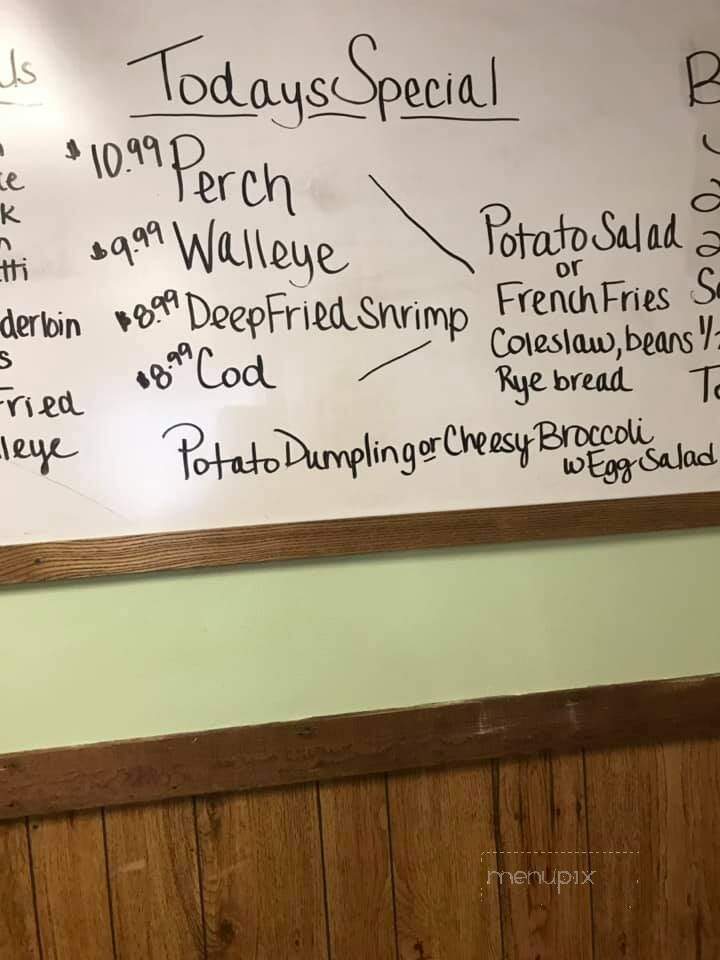 Todays Special
$10.99 Perch
$9.99 Walleye
$8.99 Deep Fried Shrimp
$8.99 Cod
Potato Salad
or
French Fries
Coleslaw, beans
Rye bread
Potato Dumpling or Cheesy Broccoli
w Egg Salad
k
tti
derbin
s
Fried
lleye
B
menupix